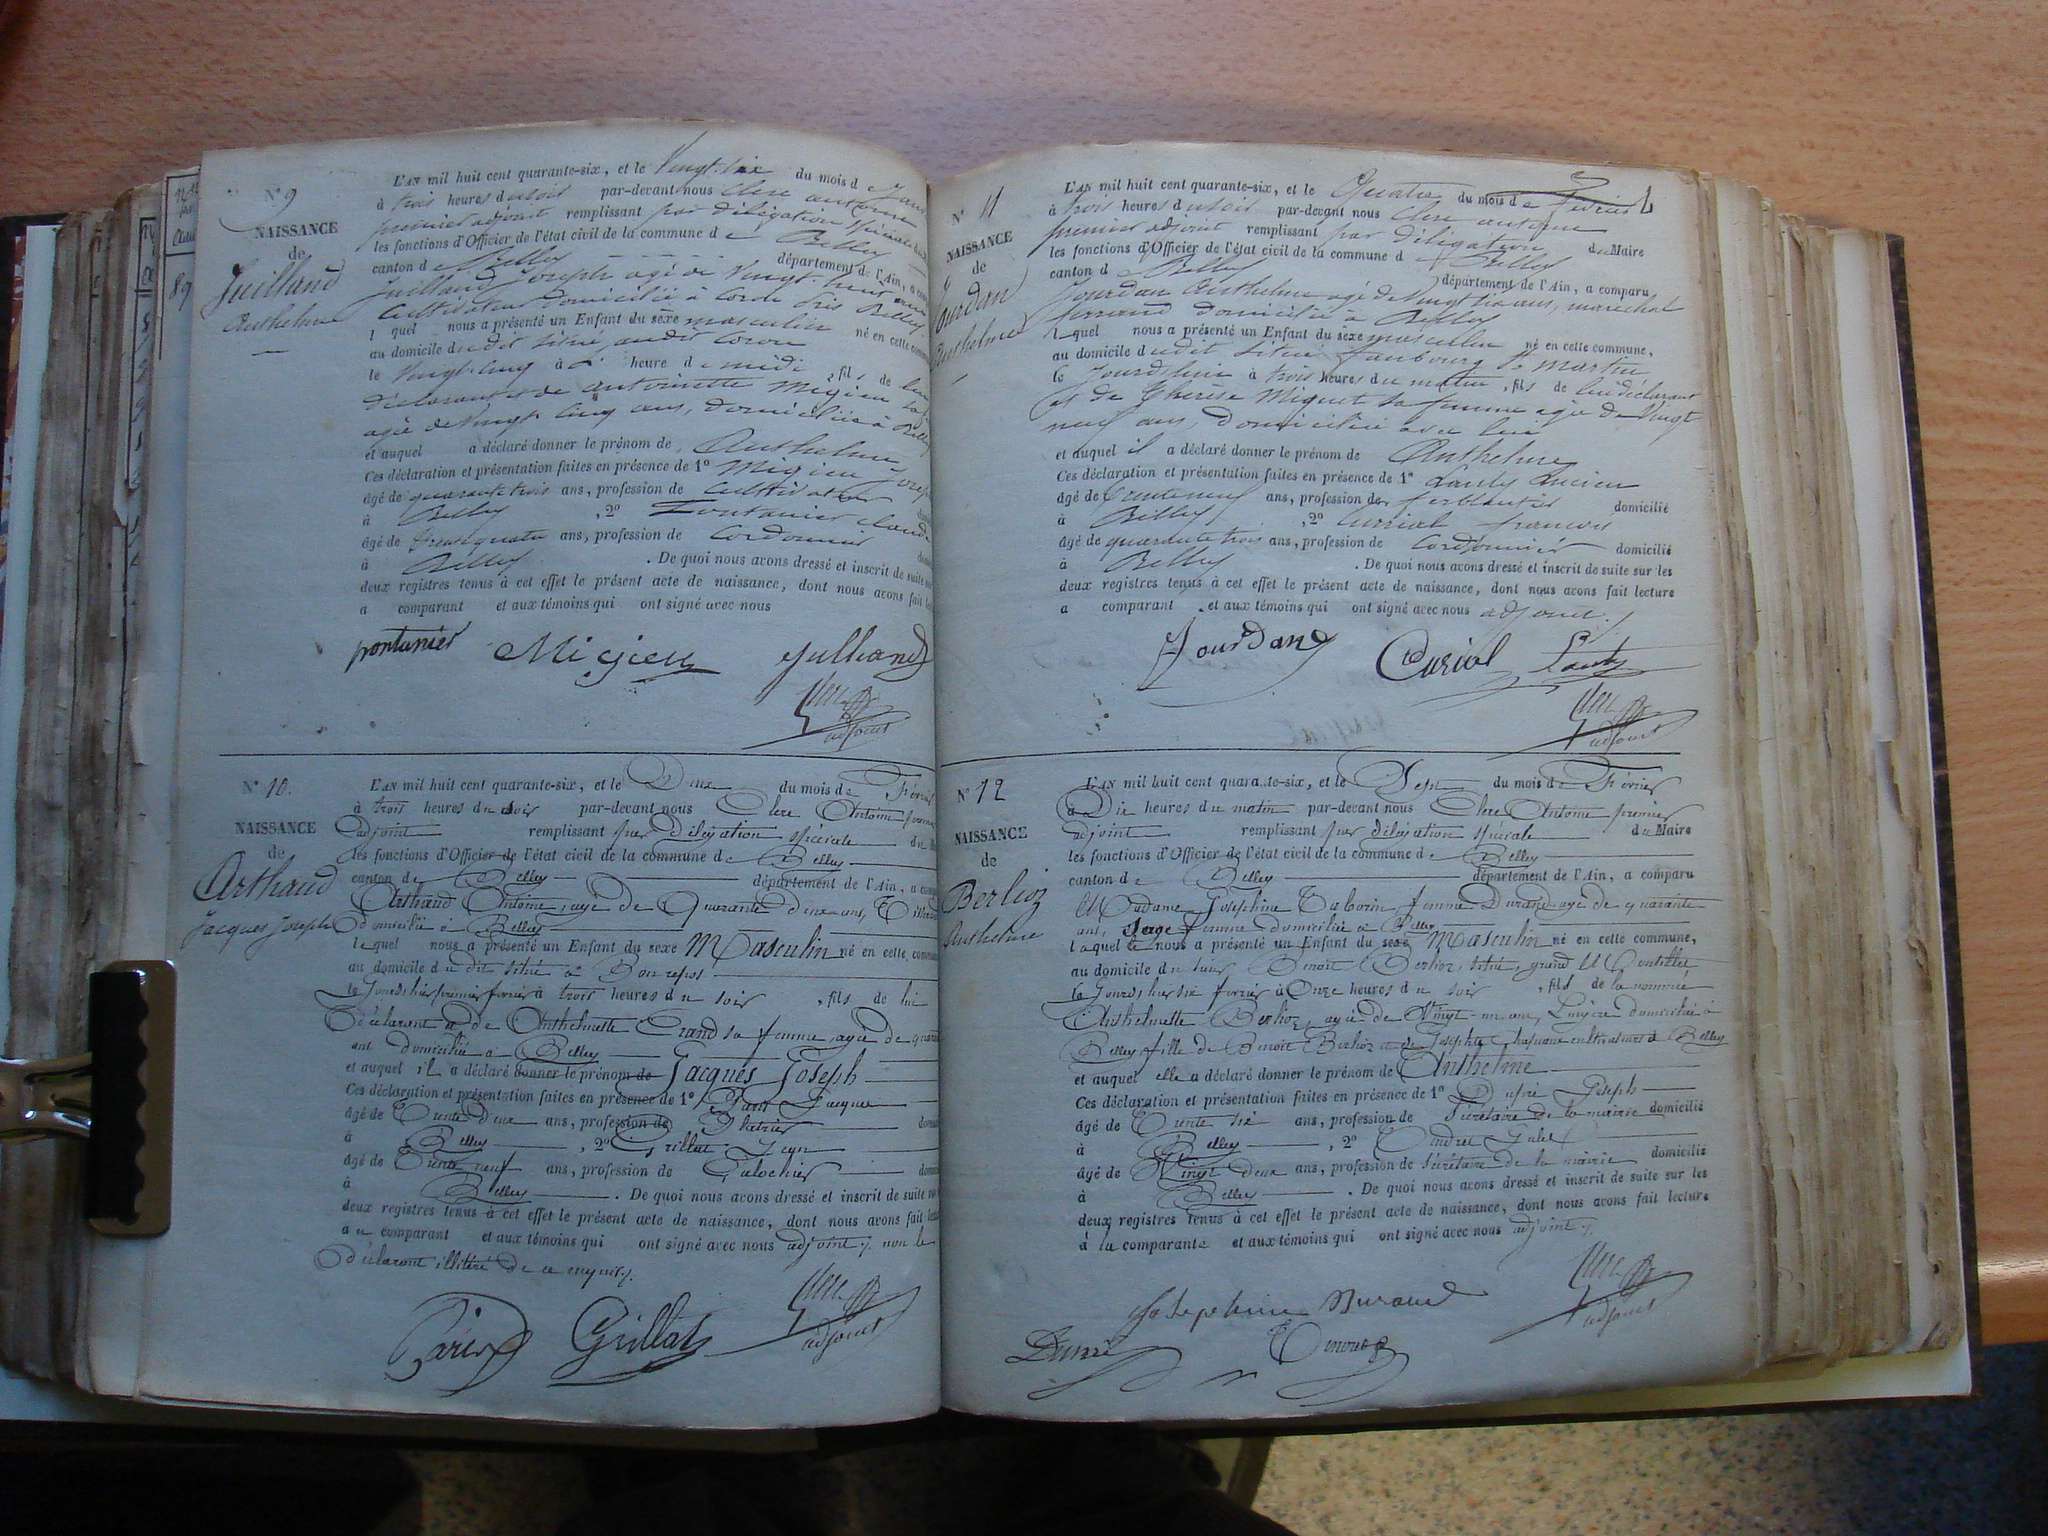 N° 9
NAISSANCE
de
Juilland
Anthelme
L'AN mil huit cent quarante-six, et le Vingt-six du mois de
à trois heures du soir par-devant nous Clerc antoine
premier adjoint remplissant par délégation spéciale
les fonctions d'Officier de l'état civil de la commune de Belley
canton de Belley département de l'Ain, a
Juilland Joseph agé de Vingt-neuf
cultivateur domicilié à Belley
lquel nous a présenté un Enfant du sexe masculin né en cette
au domicile du dit
le Vingt-cinq à heure de midi, fils de lui
déclarant et de antoinette Migieu
agée de Vingt cinq ans, domiciliée à Belley
et auquel a déclaré donner le prénom de Anthelme
Ces déclaration et présentation faites en présence de 1° Migieu
âgé de quarante trois ans, profession de cultivateur
à Belley, 2° Fontanier claude
âgé de trente quatre ans, profession de Cordonnier
à Belley. De quoi nous avons dressé et inscrit de suite sur
deux registres tenus à cet effet le présent acte de naissance, dont nous avons fait
a comparant et aux témoins qui ont signé avec nous
fontanier Migieu Julliand
Clerc
adjoint
N° 10.
NAISSANCE
de
Arthaud
Jacques Joseph
L'AN mil huit cent quarante-six, et le Deux du mois de Février
à trois heures du soir par-devant nous Clerc Antoine premier
adjoint remplissant par délégation spéciale du
les fonctions d'Officier de l'état civil de la commune de Belley
canton de Belley département de l'Ain, a
Arthaud Antoine, agé de Quarante deux ans,
domicilié à Belley
lequel nous a présenté un Enfant du sexe Masculin né en cette
au domicile du dit situé à Bon repos
le Jourd'hier premier fevrier à trois heures du soir, fils de lui
Déclarant et de Anthelmette sa femme, agée de
ans domiciliée à Belley
et auquel il a déclaré donner le prénom de Jacques Joseph
Ces déclaration et présentation faites en présence de 1° Paris Jacques
âgé de Trente deux ans, profession de Platrier
à Belley, 2° Grillat Jean
âgé de Trente neuf ans, profession de Galochier
à Belley. De quoi nous avons dressé et inscrit de suite
deux registres tenus à cet effet le présent acte de naissance, dont nous avons fait
au comparant et aux témoins qui ont signé avec nous adjoint non le
déclarant illitéré de ce enquis
Paris Grillat
Clerc
adjoint
N° 11
NAISSANCE
de
Jourdan
Anthelme
L'AN mil huit cent quarante-six, et le Quatre du mois de Février
à trois heures du soir par-devant nous Clerc antoine
premier adjoint remplissant par délégation du Maire
les fonctions d'Officier de l'état civil de la commune d Belley
canton d Belley département de l'Ain, a comparu
Jourdan Anthelme agé de Vingt six ans, marechal
ferrand domicilié à Belley
lquel nous a présenté un Enfant du sexe masculin né en cette commune,
au domicile dudit situé faubourg St martin
le Jourd'hui à trois heures du matin, fils de lui déclarant
et de Thérèse Miguet sa femme agée de Vingt
neuf ans, domiciliée avec lui
et auquel il a déclaré donner le prénom de Anthelme
Ces déclaration et présentation faites en présence de 1° Lucien
âgé de trente neuf ans, profession de ferblantier domicilié
à Belley, 2° Curial francois
âgé de quarante trois ans, profession de Cordonnier domicilié
à Belley. De quoi nous avons dressé et inscrit de suite sur les
deux registres tenus à cet effet le présent acte de naissance, dont nous avons fait lecture
a comparant et aux témoins qui ont signé avec nous adjoint
Jourdan Curial
Clerc
adjoint
N° 12
NAISSANCE
de
Berlioz
Anthelme
L'AN mil huit cent quarante-six, et le Sept du mois de Février
à Dix heures du matin par-devant nous Clerc Antoine premier
adjoint remplissant par délégation spéciale du Maire
les fonctions d'Officier de l'état civil de la commune de Belley
canton de Belley département de l'Ain, a comparu
Madame Josephine Taborin femme Durand agé de quarante
ans, Sage femme domiciliée à Belley
laquelle nous a présenté un Enfant du sexe Masculin né en cette commune,
au domicile du sieur Benoit Berlioz, situé, grand
le Jourd'hier six fevrier à Onze heures du soir, fils de la nommée
Anthelmette Berlioz, agée de Vingt-un ans, Lingère domiciliée à
Belley fille de Benoit Berlioz et de Josephte cultivateurs à Belley
et auquel elle a déclaré donner le prénom de Anthelme
Ces déclaration et présentation faites en présence de 1° Joseph
âgé de Trente six ans, profession de Sécrétaire de la mairie domicilié
à Belley, 2° Endret
âgé de Vingt deux ans, profession de sécrétaire de la mairie domicilié
à Belley. De quoi nous avons dressé et inscrit de suite sur les
deux registres tenus à cet effet le présent acte de naissance, dont nous avons fait lecture
à la comparante et aux témoins qui ont signé avec nous adjoint
Josephine Durand
Clerc
adjoint